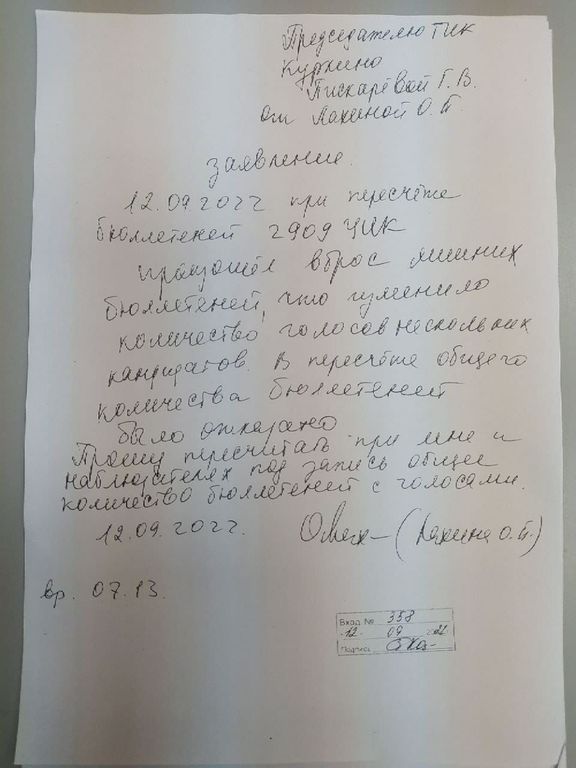 Председателю ТИК
Куркино
Пискарёвой Г. В.
от Лахиной О. П.
заявление.
12.09.2022 при пересчёте
бюллетеней 2909 УИК
произошёл вброс лишних
бюллетеней, что изменило
количество голосов нескольких
кандидатов. В пересчёте общего
количества бюллетеней
было отказано
Прошу пересчитать при мне и
наблюдателях под запись общее
количество бюллетеней с голосами.
12.09.2022. (Лахина О.П.)
вр. 07.13.
Вход № 358
12 09
Подпись